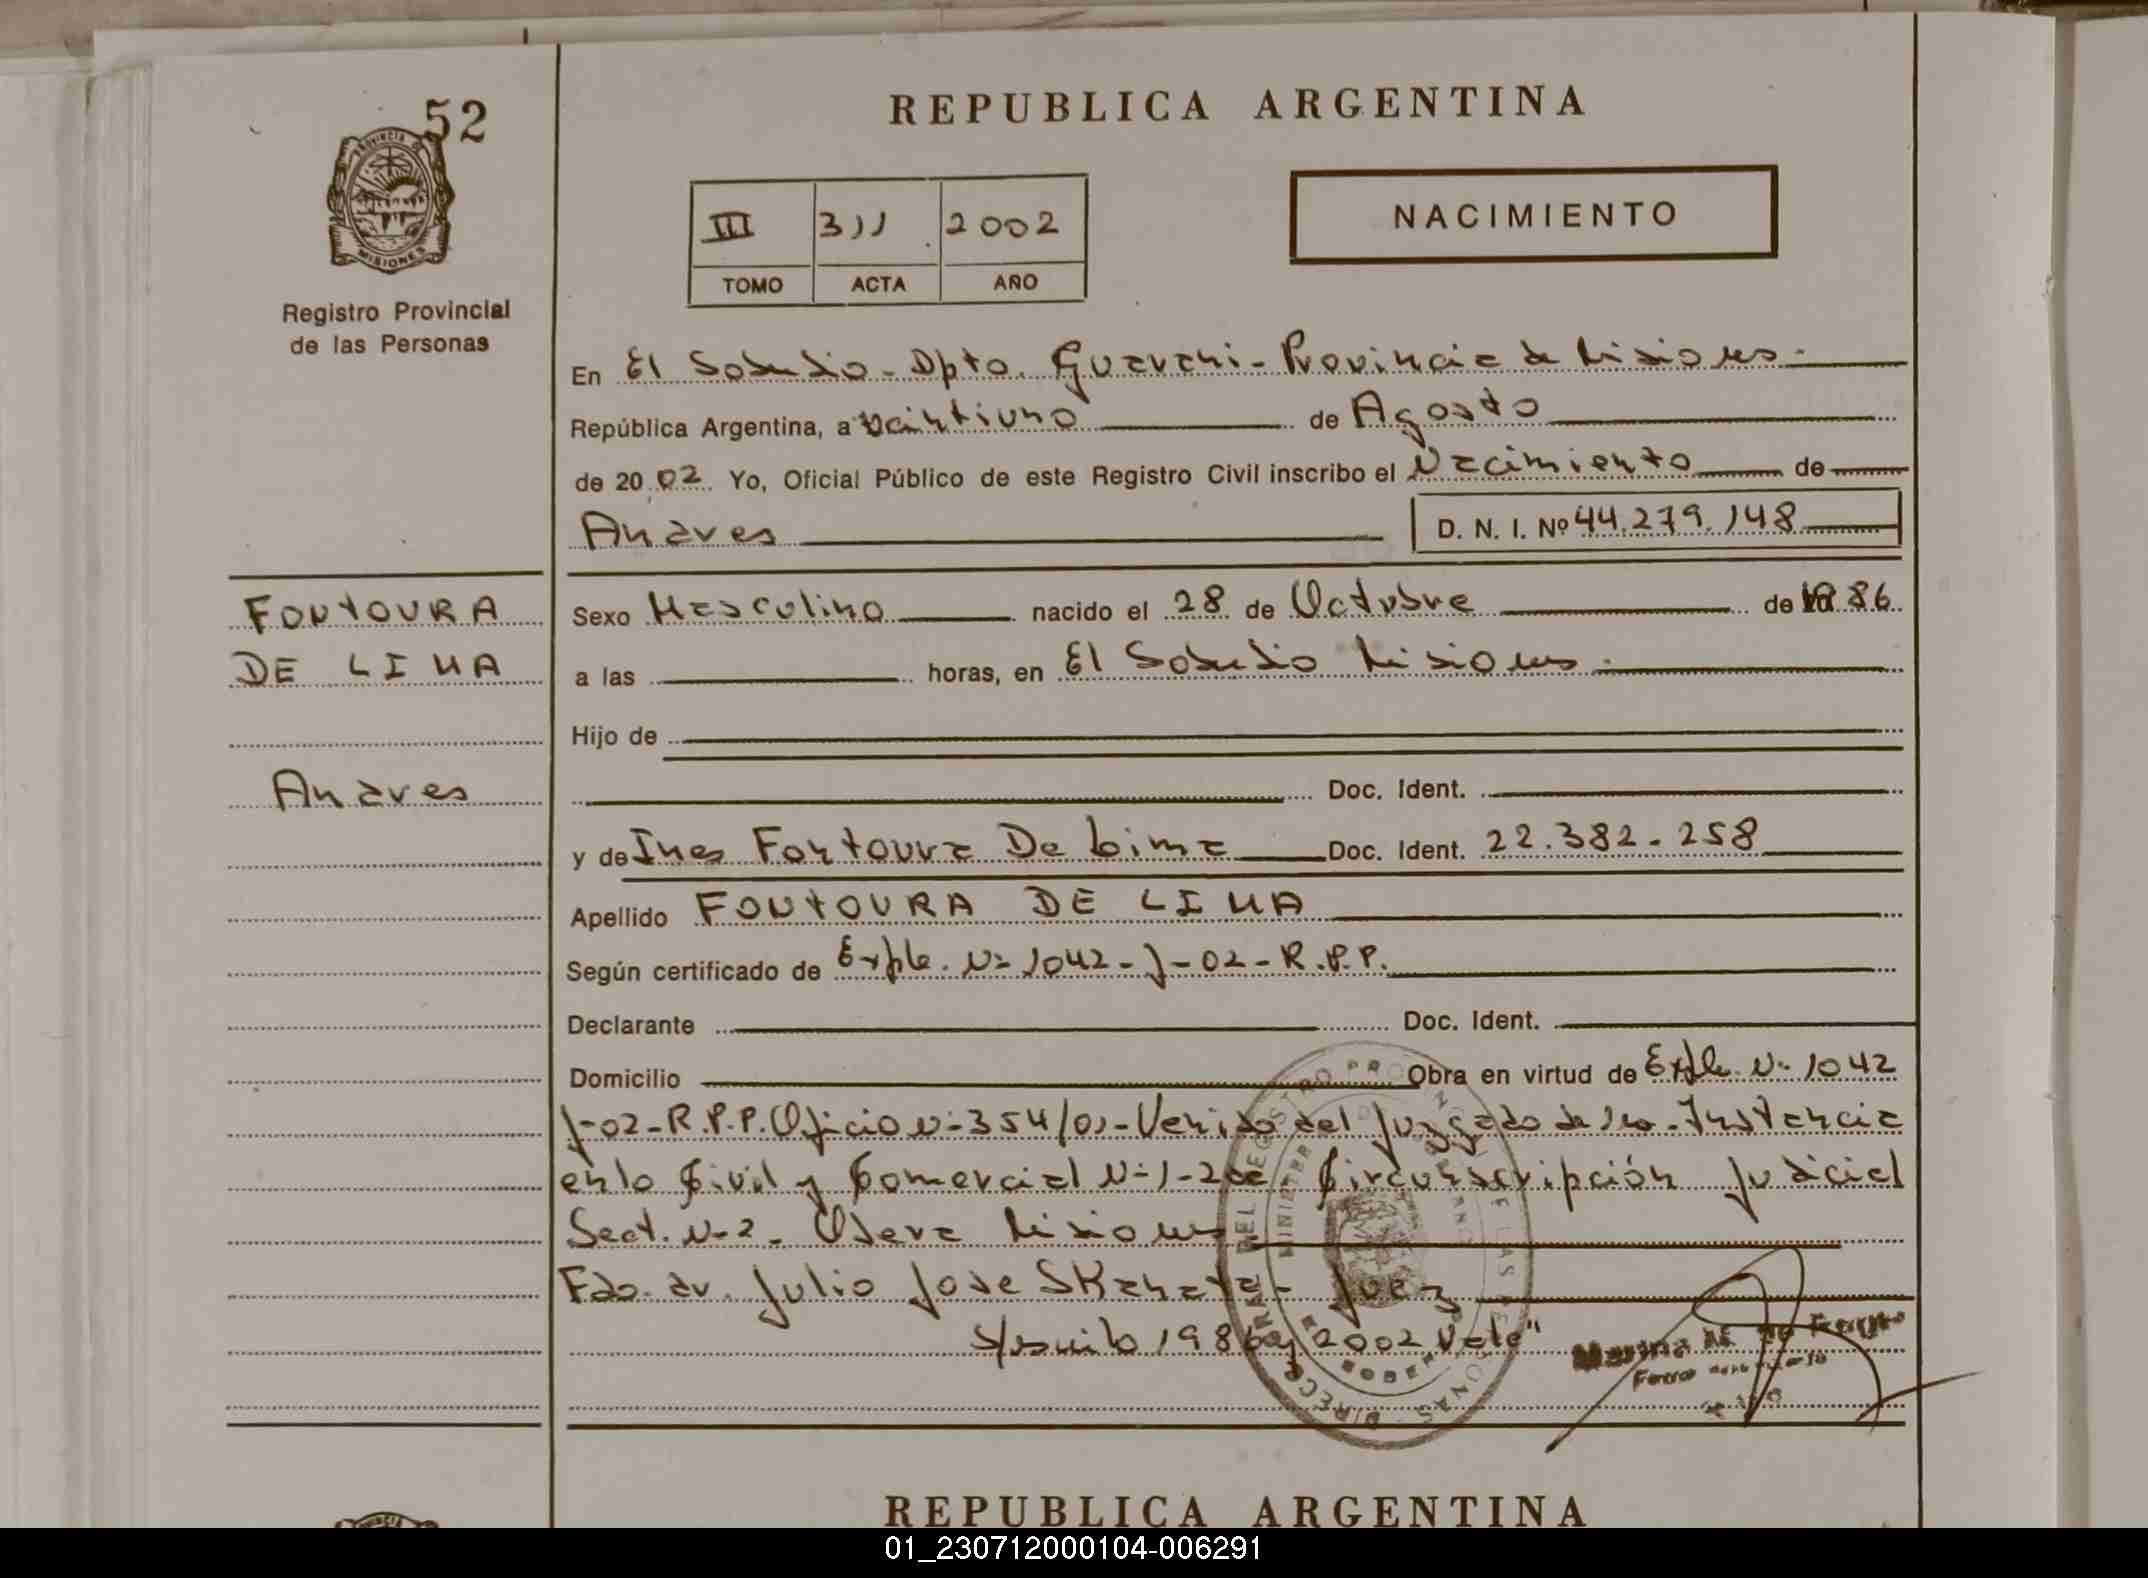 52
PROVINCIA DE
MISIONES
Registro Provincial
de las Personas
REPUBLICA ARGENTINA
III 311 2002
TOMO ACTA AÑO
NACIMIENTO
En El Soberbio - Dpto. Guarani - Provincia de Misiones -
República Argentina, a veintiuno de Agosto
de 2002 Yo, Oficial Público de este Registro Civil inscribo el Nacimiento de
Andres D. N. I. Nº 44.279.148
FONTOURA
DE LIMA
Andres
Sexo Masculino nacido el 28 de Octubre de 1986
a las horas, en El Soberbio Misiones -
Hijo de
Doc. Ident.
y de Ines Fontoura De Lima Doc. Ident. 22.382.258
Apellido FONTOURA DE LIMA
Según certificado de Expte. Nº 1042 - J - 02 - R.P.P.
Declarante Doc. Ident.
Domicilio Obra en virtud de Expte. Nº 1042
J-02-R.P.P. Oficio Nº 354/01 - Venido del Juzgado de 1ra. Instancia
en lo Civil y Comercial Nº 1 - 2da Circunscripción Judicial
Sect. Nº 2 - Obera Misiones
Fdo. dr. Julio Jose Skanata - Juez
1986 2002 Vale"
REPUBLICA ARGENTINA
01_230712000104-006291